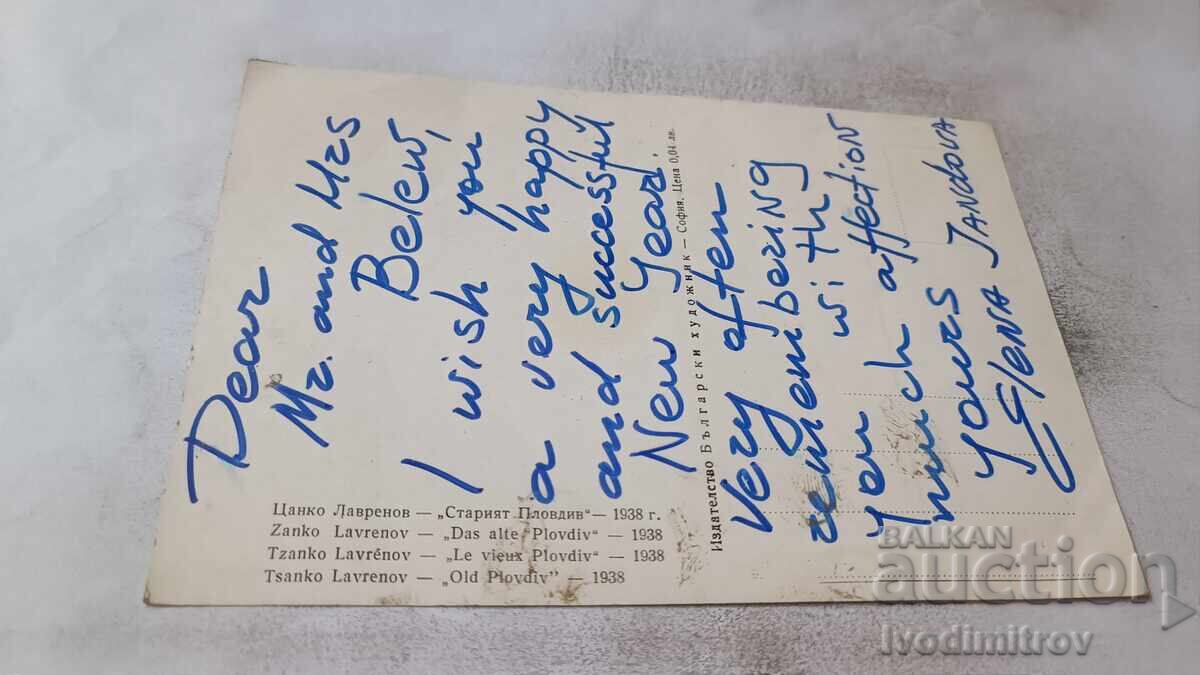 Dear
Mr. and Mrs
Belew,
I wish you
a very happy
and successful
New Year.
Very often
remembering
you with
much affection
yours
Elena Jandova
Цанко Лавренов — „Старият Пловдив“ — 1938 г.
Zanko Lavrenov — „Das alte Plovdiv“ — 1938
Tzanko Lavrénov — „Le vieux Plovdiv“ — 1938
Tsanko Lavrenov — „Old Plovdiv” — 1938
Издателство Български художник — София. Цена 0,04 лв.
BALKAN
auction
Ivodimitrov